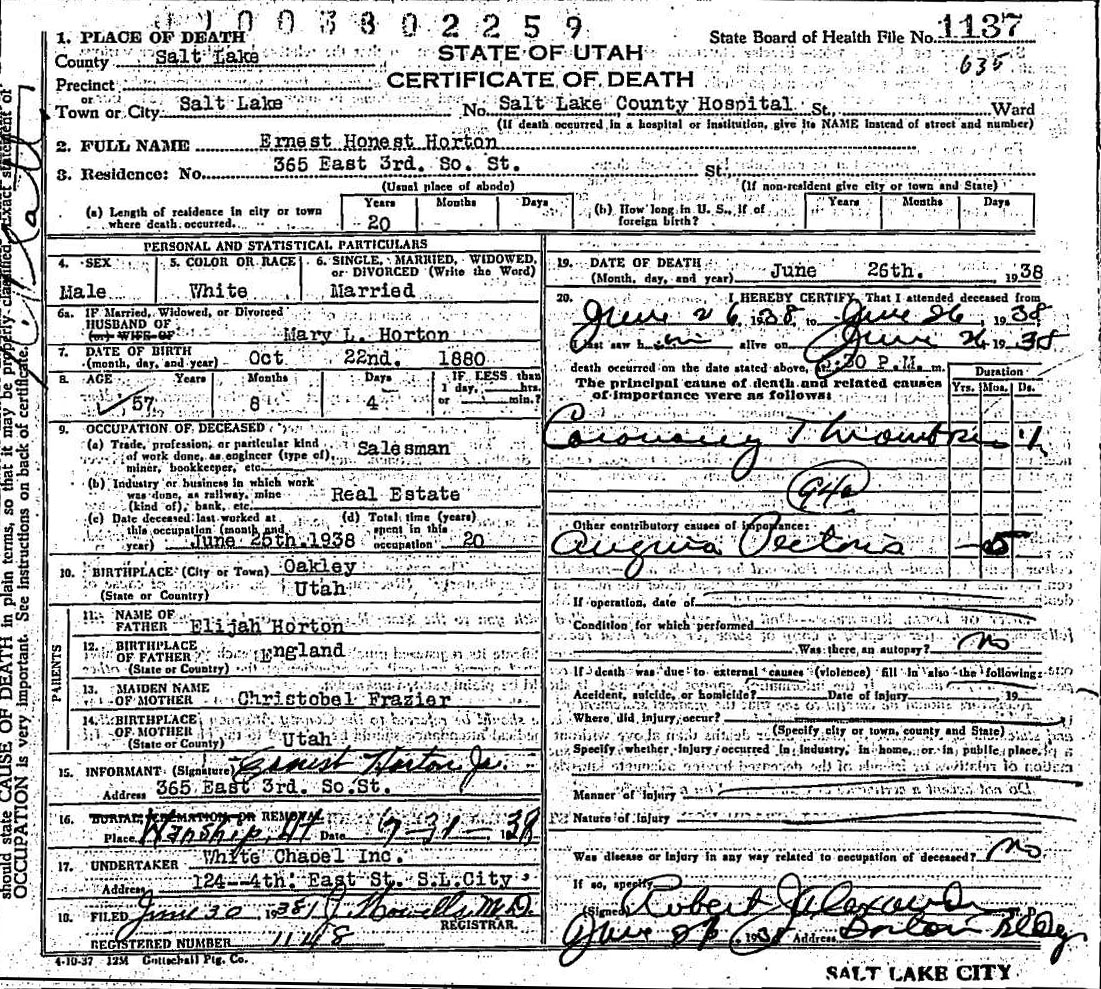 1003802259
1. PLACE OF DEATH
State Board of Health File No. 1137
County Salt Lake
STATE OF UTAH
635
Precinct
CERTIFICATE OF DEATH
or
Town or City Salt Lake No. Salt Lake County Hospital St. Ward
(If death occurred in a hospital or institution, give its NAME instead of street and number)
2. FULL NAME Ernest Honest Horton
3. Residence: No. 365 East 3rd. So. St. St.
(Usual place of abode) (If non-resident give city or town and State)
(a) Length of residence in city or town where death occurred. Years 20 Months Days
(b) How long in U. S., if of foreign birth? Years Months Days
PERSONAL AND STATISTICAL PARTICULARS
4. SEX 5. COLOR OR RACE 6. SINGLE, MARRIED, WIDOWED, or DIVORCED (Write the Word)
Male White Married
6a. IF Married, Widowed, or Divorced
HUSBAND OF
(or) WIFE OF Mary L. Horton
7. DATE OF BIRTH
(month, day, and year) Oct 22nd. 1880
8. AGE Years Months Days IF LESS than
1 day, hrs.
57 8 4 or min.?
9. OCCUPATION OF DECEASED
(a) Trade, profession, or particular kind
of work done, as engineer (type of), Salesman
miner, bookkeeper, etc.
(b) Industry or business in which work
was done, as railway, mine Real Estate
(kind of), bank, etc.
(c) Date deceased last worked at
this occupation (month and
year) June 25th.1938
(d) Total time (years)
spent in this
occupation 20
10. BIRTHPLACE (City or Town) Oakley
(State or Country) Utah
PARENTS
11. NAME OF
FATHER Elijah Horton
12. BIRTHPLACE
OF FATHER England
(State or Country)
13. MAIDEN NAME
OF MOTHER Christobel Frazier
14. BIRTHPLACE
OF MOTHER Utah
(State or Country)
15. INFORMANT (Signature) Ernest Horton Jr.
Address 365 East 3rd. So.St.
16. BURIAL, CREMATION, OR REMOVAL
Place Wanship, UT Date
17. UNDERTAKER White Chapel Inc.
Address 124--4th. East St. S.L.City
18. FILED June 30 1938 M.D.
REGISTRAR.
REGISTERED NUMBER 1148
4-10-37 12M Gottschall Ptg. Co.
19. DATE OF DEATH
(Month, day, and year) June 26th. 1938
20. I HEREBY CERTIFY, That I attended deceased from
June 26, 1938 to June 26, 1938
I last saw him alive on June 26 1938
death occurred on the date stated above, at :30 P.M. m.
The principal cause of death and related causes
of importance were as follows:
Duration
Yrs. Mos. Ds.
Coronary Thrombosis
94a
Other contributory causes of importance:
Angina Pectoris 5
If operation, date of
Condition for which performed
Was there an autopsy? no
If death was due to external causes (violence) fill in also the following:
Accident, suicide, or homicide? Date of injury 19
Where did injury occur?
(Specify city or town, county and State)
Specify whether injury occurred in industry, in home, or in public place.
Manner of injury
Nature of injury
Was disease or injury in any way related to occupation of deceased? no
If so, specify
(Signed) Robert J Alexander
June 26, 1938 Address Boston Bldg
SALT LAKE CITY
should state CAUSE OF DEATH in plain terms, so that it may be properly classified. Exact statement of
OCCUPATION is very important. See instructions on back of certificate.